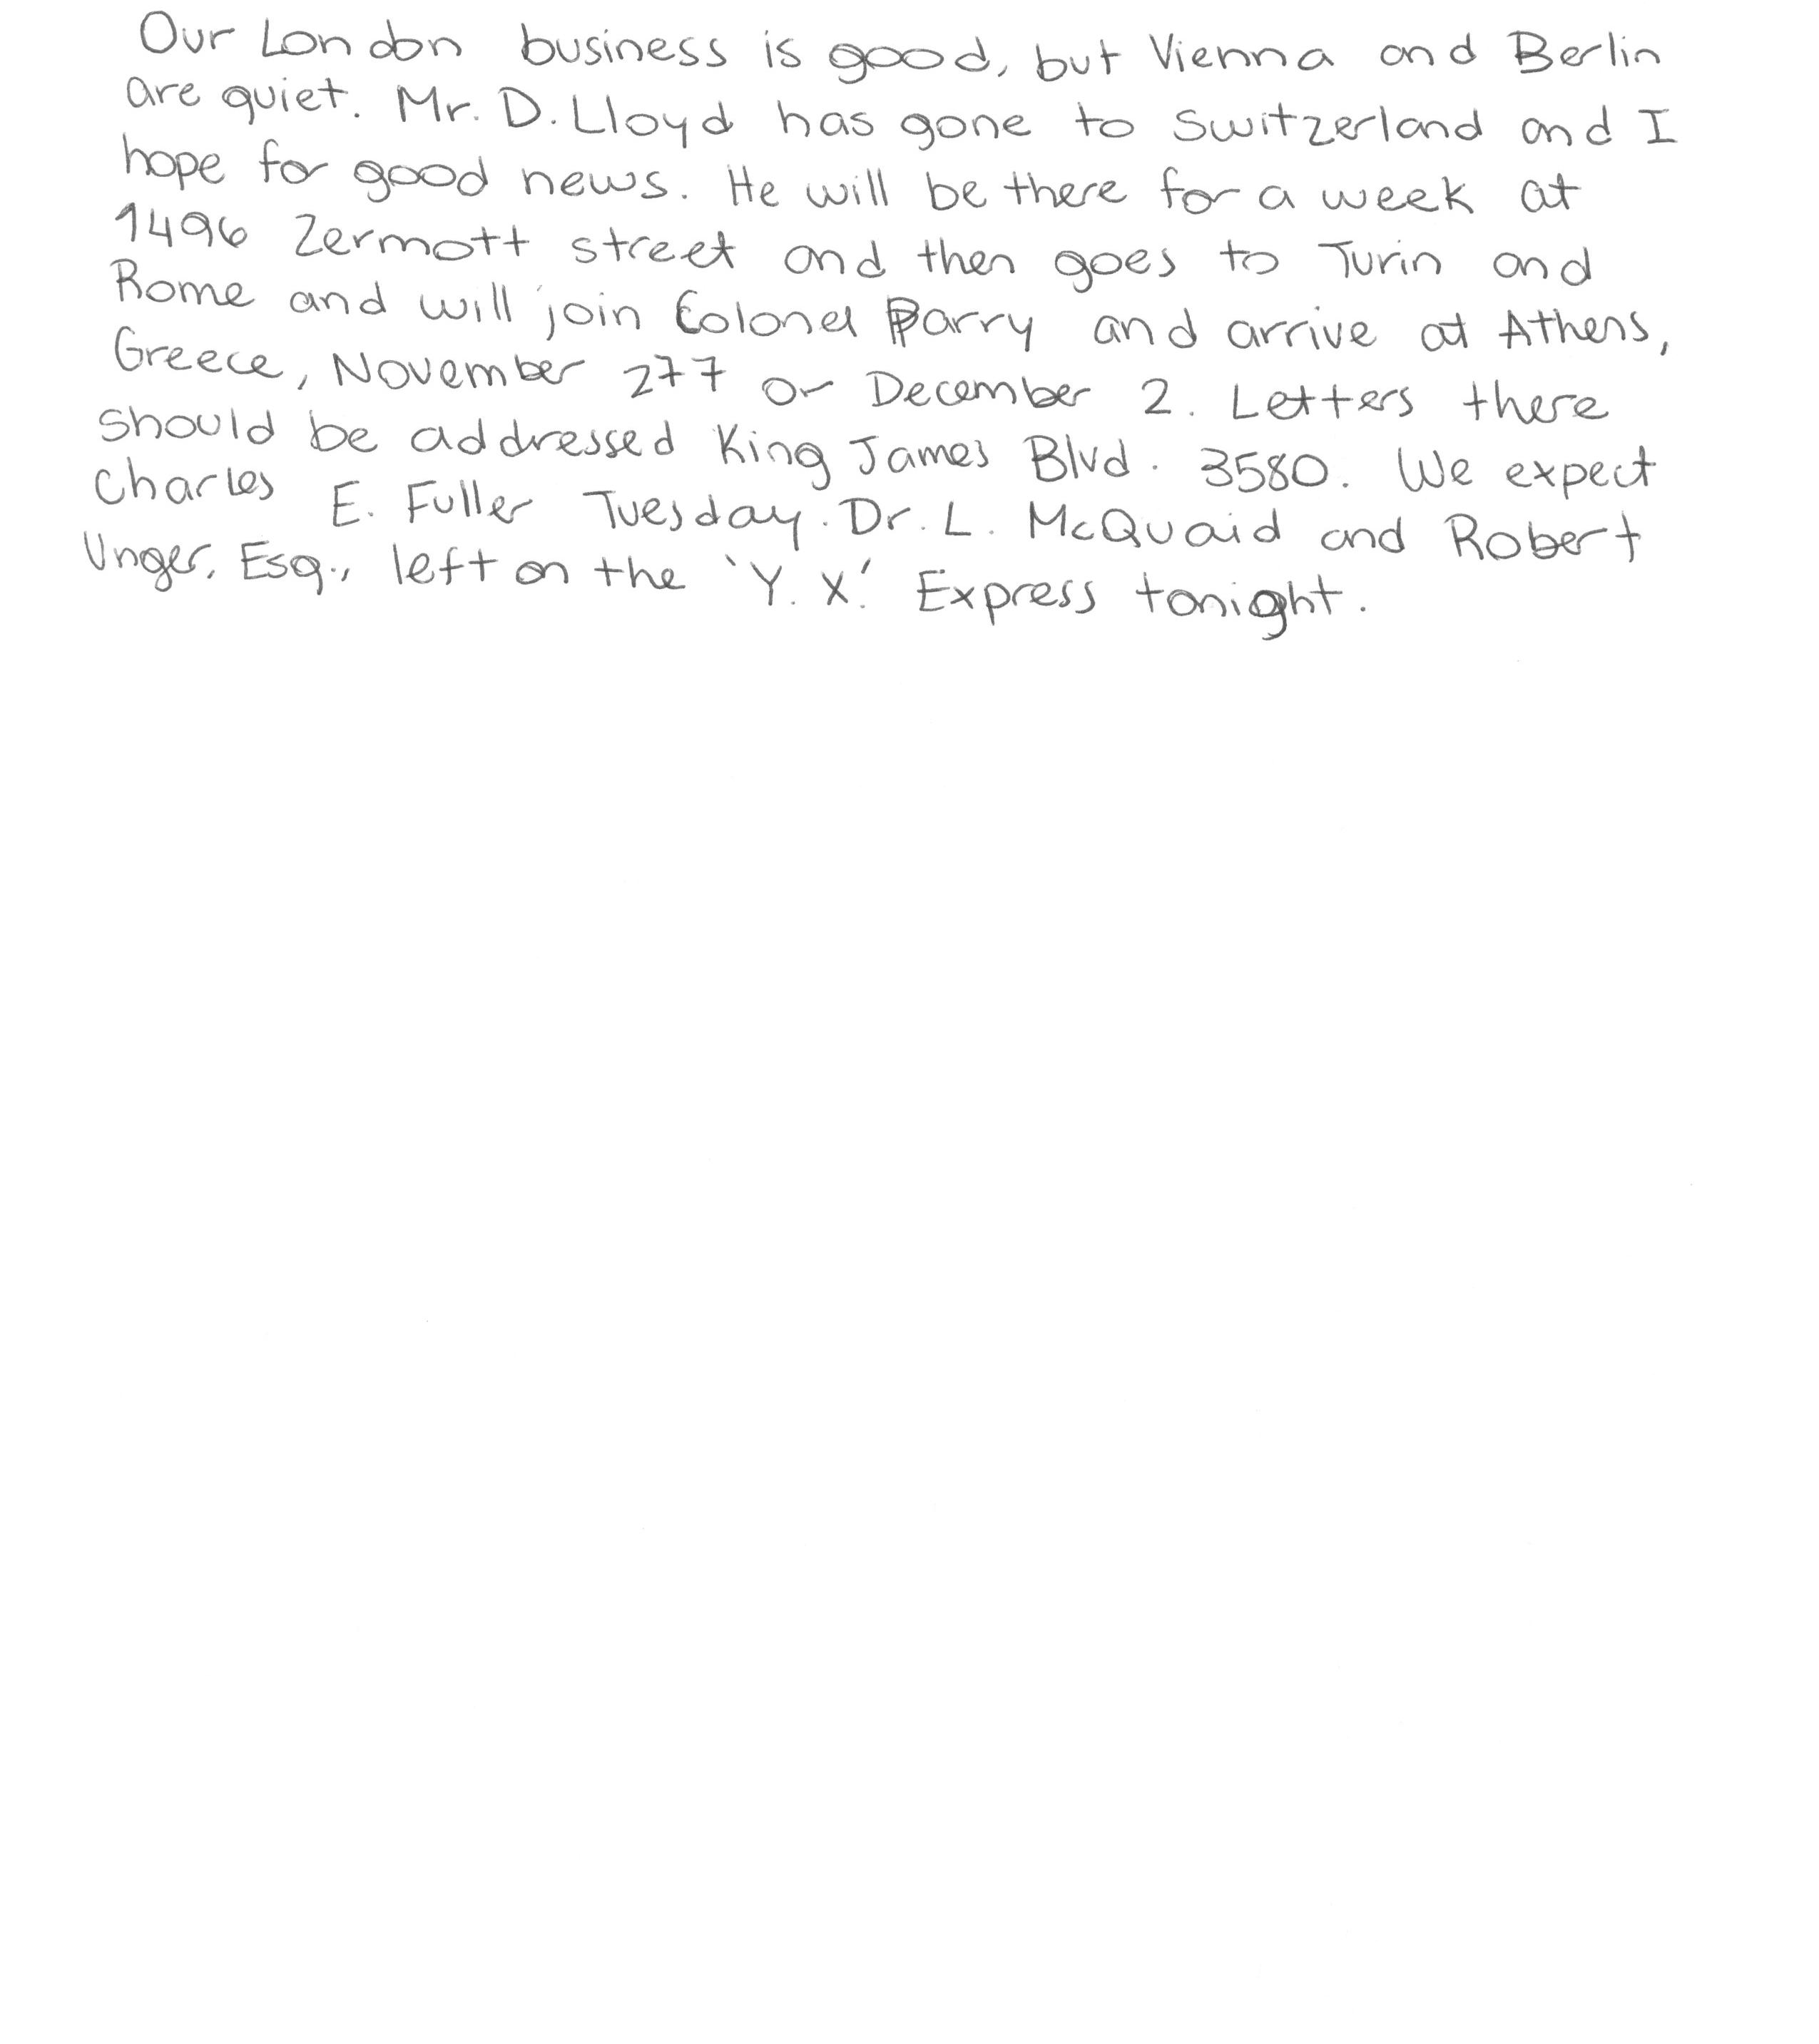 Our London business is good, but Vienna and Berlin
are quiet. Mr. D. Lloyd has gone to Switzerland and I
hope for good news. He will be there for a week at
1496 Zermott street and then goes to Turin and
Rome and will join Colonel Parry and arrive at Athens,
Greece, November 277 or December 2. Letters there
should be addressed King James Blvd. 3580. We expect
Charles E. Fuller Tuesday. Dr. L. McQuaid and Robert
Unger, Esq., left on the 'Y. X.' Express tonight.